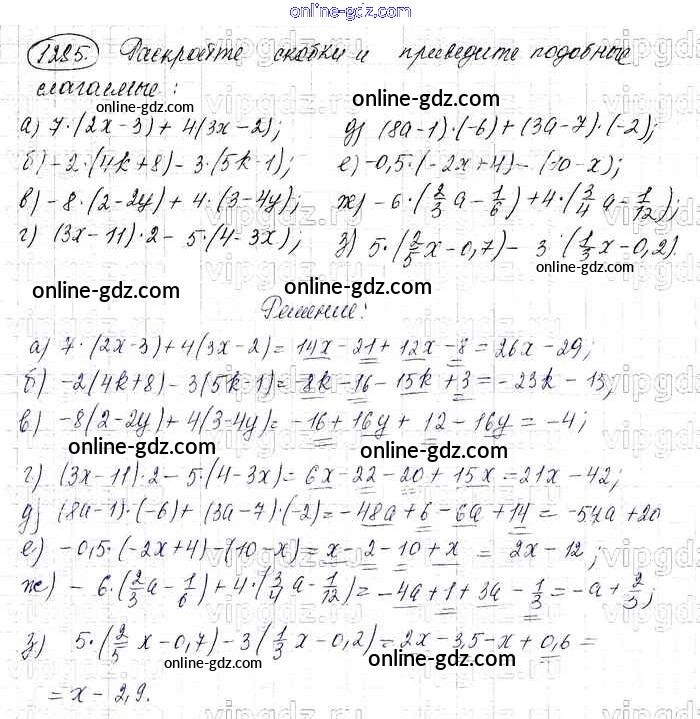 online-gdz.com
1285. Раскройте скобки и приведите подобные
слагаемые:
online-gdz.com
online-gdz.com
а) 7·(2x-3)+4(3x-2); д) (8a-1)·(-6)+(3a-7)·(-2);
б) -2·(4k+8)-3·(5k-1); е) -0,5·(-2x+4)-(10-x);
online-gdz.com
online-gdz.com
в) -8·(2-2y)+4·(3-4y); ж) -6·(2/3 a - 1/6)+4·(3/4 a - 1/12);
г) (3x-11)·2-5·(4-3x); з) 5·(2/5 x-0,7)-3·(1/3 x-0,2).
online-gdz.com
online-gdz.com
Решение:
online-gdz.com
а) 7·(2x-3)+4(3x-2)=14x-21+12x-8=26x-29;
б) -2(4k+8)-3(5k-1)=-8k-16-15k+3=-23k-13;
online-gdz.com
в) -8(2-2y)+4(3-4y)=-16+16y+12-16y=-4;
online-gdz.com
online-gdz.com
г) (3x-11)·2-5·(4-3x)=6x-22-20+15x=21x-42;
д) (8a-1)·(-6)+(3a-7)·(-2)=-48a+6-6a+14=-54a+20
online-gdz.com
online-gdz.com
е) -0,5·(-2x+4)-(10-x)=x-2-10+x=2x-12;
ж) -6·(2/3 a - 1/6)+4·(3/4 a - 1/12)=-4a+1+3a-1/3=-a+2/3;
з) 5·(2/5 x-0,7)-3(1/3 x-0,2)=2x-3,5-x+0,6=
online-gdz.com
online-gdz.com
=x-2,9.